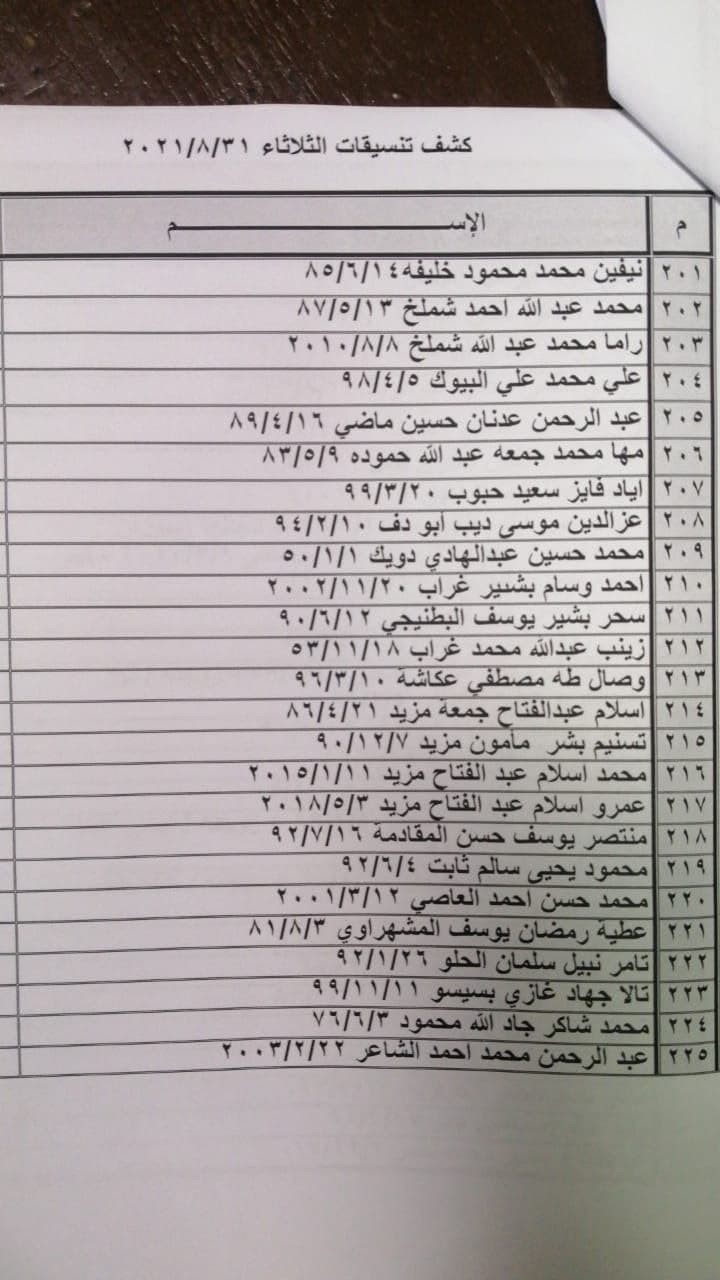 كشف تنسيقات الثلاثاء ٢٠٢١/٨/٣١
م الإســـــــــــــــــــــــــــــم
٢٠١ نيفين محمد محمود خليفه ٨٥/٦/١٤
٢٠٢ محمد عبد الله احمد شملخ ٨٧/٥/١٣
٢٠٣ راما محمد عبد الله شملخ ٢٠١٠/٨/٨
٢٠٤ علي محمد علي البيوك ٩٨/٤/٥
٢٠٥ عبد الرحمن عدنان حسين ماضي ٨٩/٤/١٦
٢٠٦ مها محمد جمعه عبد الله حموده ٨٣/٥/٩
٢٠٧ اياد فايز سعيد حبوب ٩٩/٣/٢٠
٢٠٨ عزالدين موسى ديب أبو دف ٩٤/٢/١٠
٢٠٩ محمد حسين عبدالهادي دويك ٥٠/١/١
٢١٠ احمد وسام بشير غراب ٢٠٠٢/١١/٢٠
٢١١ سحر بشير يوسف البطنيجي ٩٠/٦/١٢
٢١٢ زينب عبدالله محمد غراب ٥٣/١١/١٨
٢١٣ وصال طه مصطفي عكاشة ٩٦/٣/١٠
٢١٤ اسلام عبدالفتاح جمعة مزيد ٨٦/٤/٢١
٢١٥ تسنيم بشر مأمون مزيد ٩٠/١٢/٧
٢١٦ محمد اسلام عبد الفتاح مزيد ٢٠١٥/١/١١
٢١٧ عمرو اسلام عبد الفتاح مزيد ٢٠١٨/٥/٣
٢١٨ منتصر يوسف حسن المقادمة ٩٢/٧/١٦
٢١٩ محمود يحيى سالم ثابت ٩٢/٦/٤
٢٢٠ محمد حسن احمد العاصي ٢٠٠١/٣/١٢
٢٢١ عطية رمضان يوسف المشهراوي ٨١/٨/٣
٢٢٢ تامر نبيل سلمان الحلو ٩٢/١/٢٦
٢٢٣ تالا جهاد غازي بسيسو ٩٩/١١/١١
٢٢٤ محمد شاكر جاد الله محمود ٧٦/٦/٣
٢٢٥ عبد الرحمن محمد احمد الشاعر ٢٠٠٣/٢/٢٢